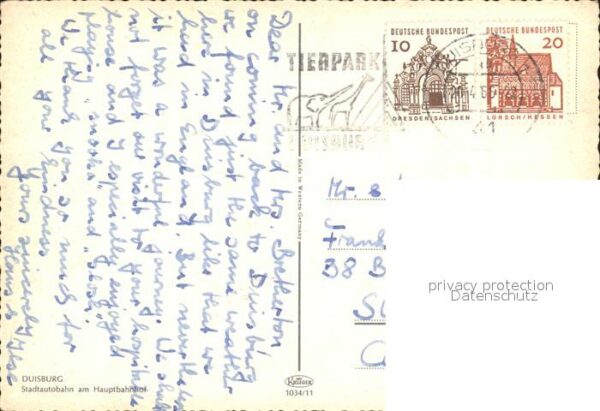 Dear Mr. and Mrs. Bretherton
on coming back to Duisburg
we found just the same weather
here in Duisburg like that we
had in England. But nevertheless
it was a wonderful journey. We shall
not forget our visit to your hospitable
house and I especially enjoyed
playing "snooker" and "Lawn".
We thank you so much for
all your kindness
Yours sincerely
DUISBURG
Stadtautobahn am Hauptbahnhof
Made in Western Germany
Krüger
1034/11
TIERPARK
DUISBURG
DEUTSCHE BUNDESPOST
10
DRESDEN/SACHSEN
DEUTSCHE BUNDESPOST
20
LORSCH/HESSEN
41
Mr. &
Frank
38 B
privacy protection
Datenschutz